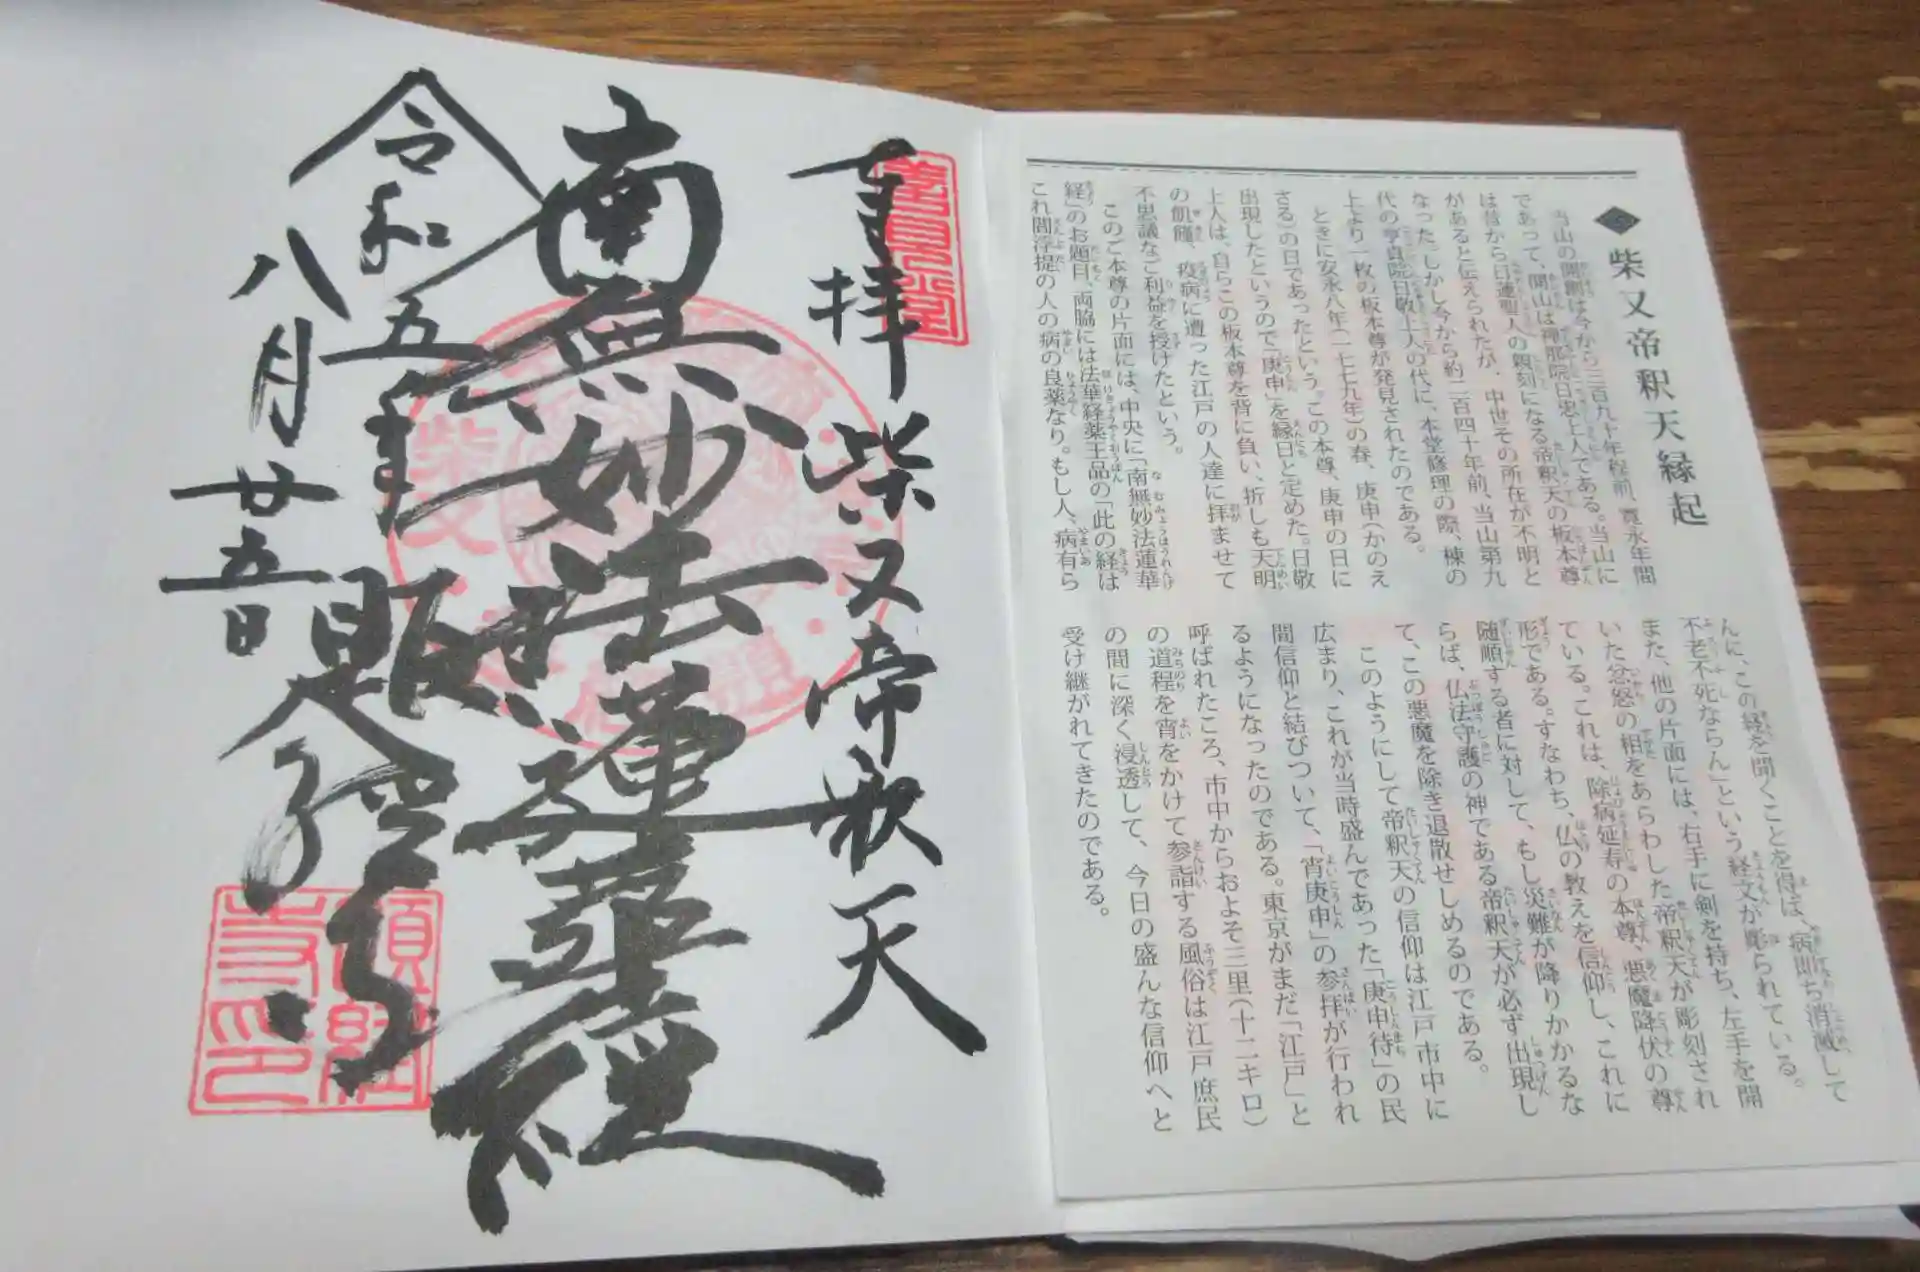 柴又帝釈天縁起
当山の開創は今から三百九十年程前、寛永年間
であって、開山は禅那院日忠上人である。当山に
は昔から日蓮聖人の親刻になる帝釈天の板本尊
があると伝えられたが、中世その所在が不明と
なった。しかし今から約二百四十年前、当山第九
代の亨貞院日敬上人の代に、本堂修理の際、棟の
上より一枚の板本尊が発見されたのである。
ときに安永八年(一七七九年)の春、庚申(かのえ
さる)の日であったという。この本尊、庚申の日に
出現したというので「庚申」を縁日と定めた。日敬
上人は、自らこの板本尊を背に負い、折しも天明
の飢饉、疫病に遭った江戸の人達に拝ませて
不思議なご利益を授けたという。
このご本尊の片面には、中央に「南無妙法蓮華
経」のお題目、両脇には法華経薬王品の「此の経は
これ閻浮提の人の病の良薬なり。もし人、病有ら
んに、この経を聞くことを得ば、病即ち消滅して
不老不死ならん」という経文が彫られている。
また、他の片面には、右手に剣を持ち、左手を開
いた忿怒の相をあらわした帝釈天が彫刻され
ている。これは、除病延寿の本尊、悪魔降伏の尊
形である。すなわち、仏の教えを信仰し、これに
随順する者に対して、もし災難が降りかかるな
らば、仏法守護の神である帝釈天が必ず出現し
て、この悪魔を除き退散せしめるのである。
このようにして帝釈天の信仰は江戸市中に
広まり、これが当時盛んであった「庚申待」の民
間信仰と結びついて、「宵庚申」の参拝が行われ
るようになったのである。東京がまだ「江戸」と
呼ばれたころ、市中からおよそ三里(十二キロ)
の道程を宵をかけて参詣する風俗は江戸庶民
の間に深く浸透して、今日の盛んな信仰へと
受け継がれてきたのである。
奉拝 柴又帝釈天
南無妙法蓮華経
令和五年
八月廿五日
題経寺